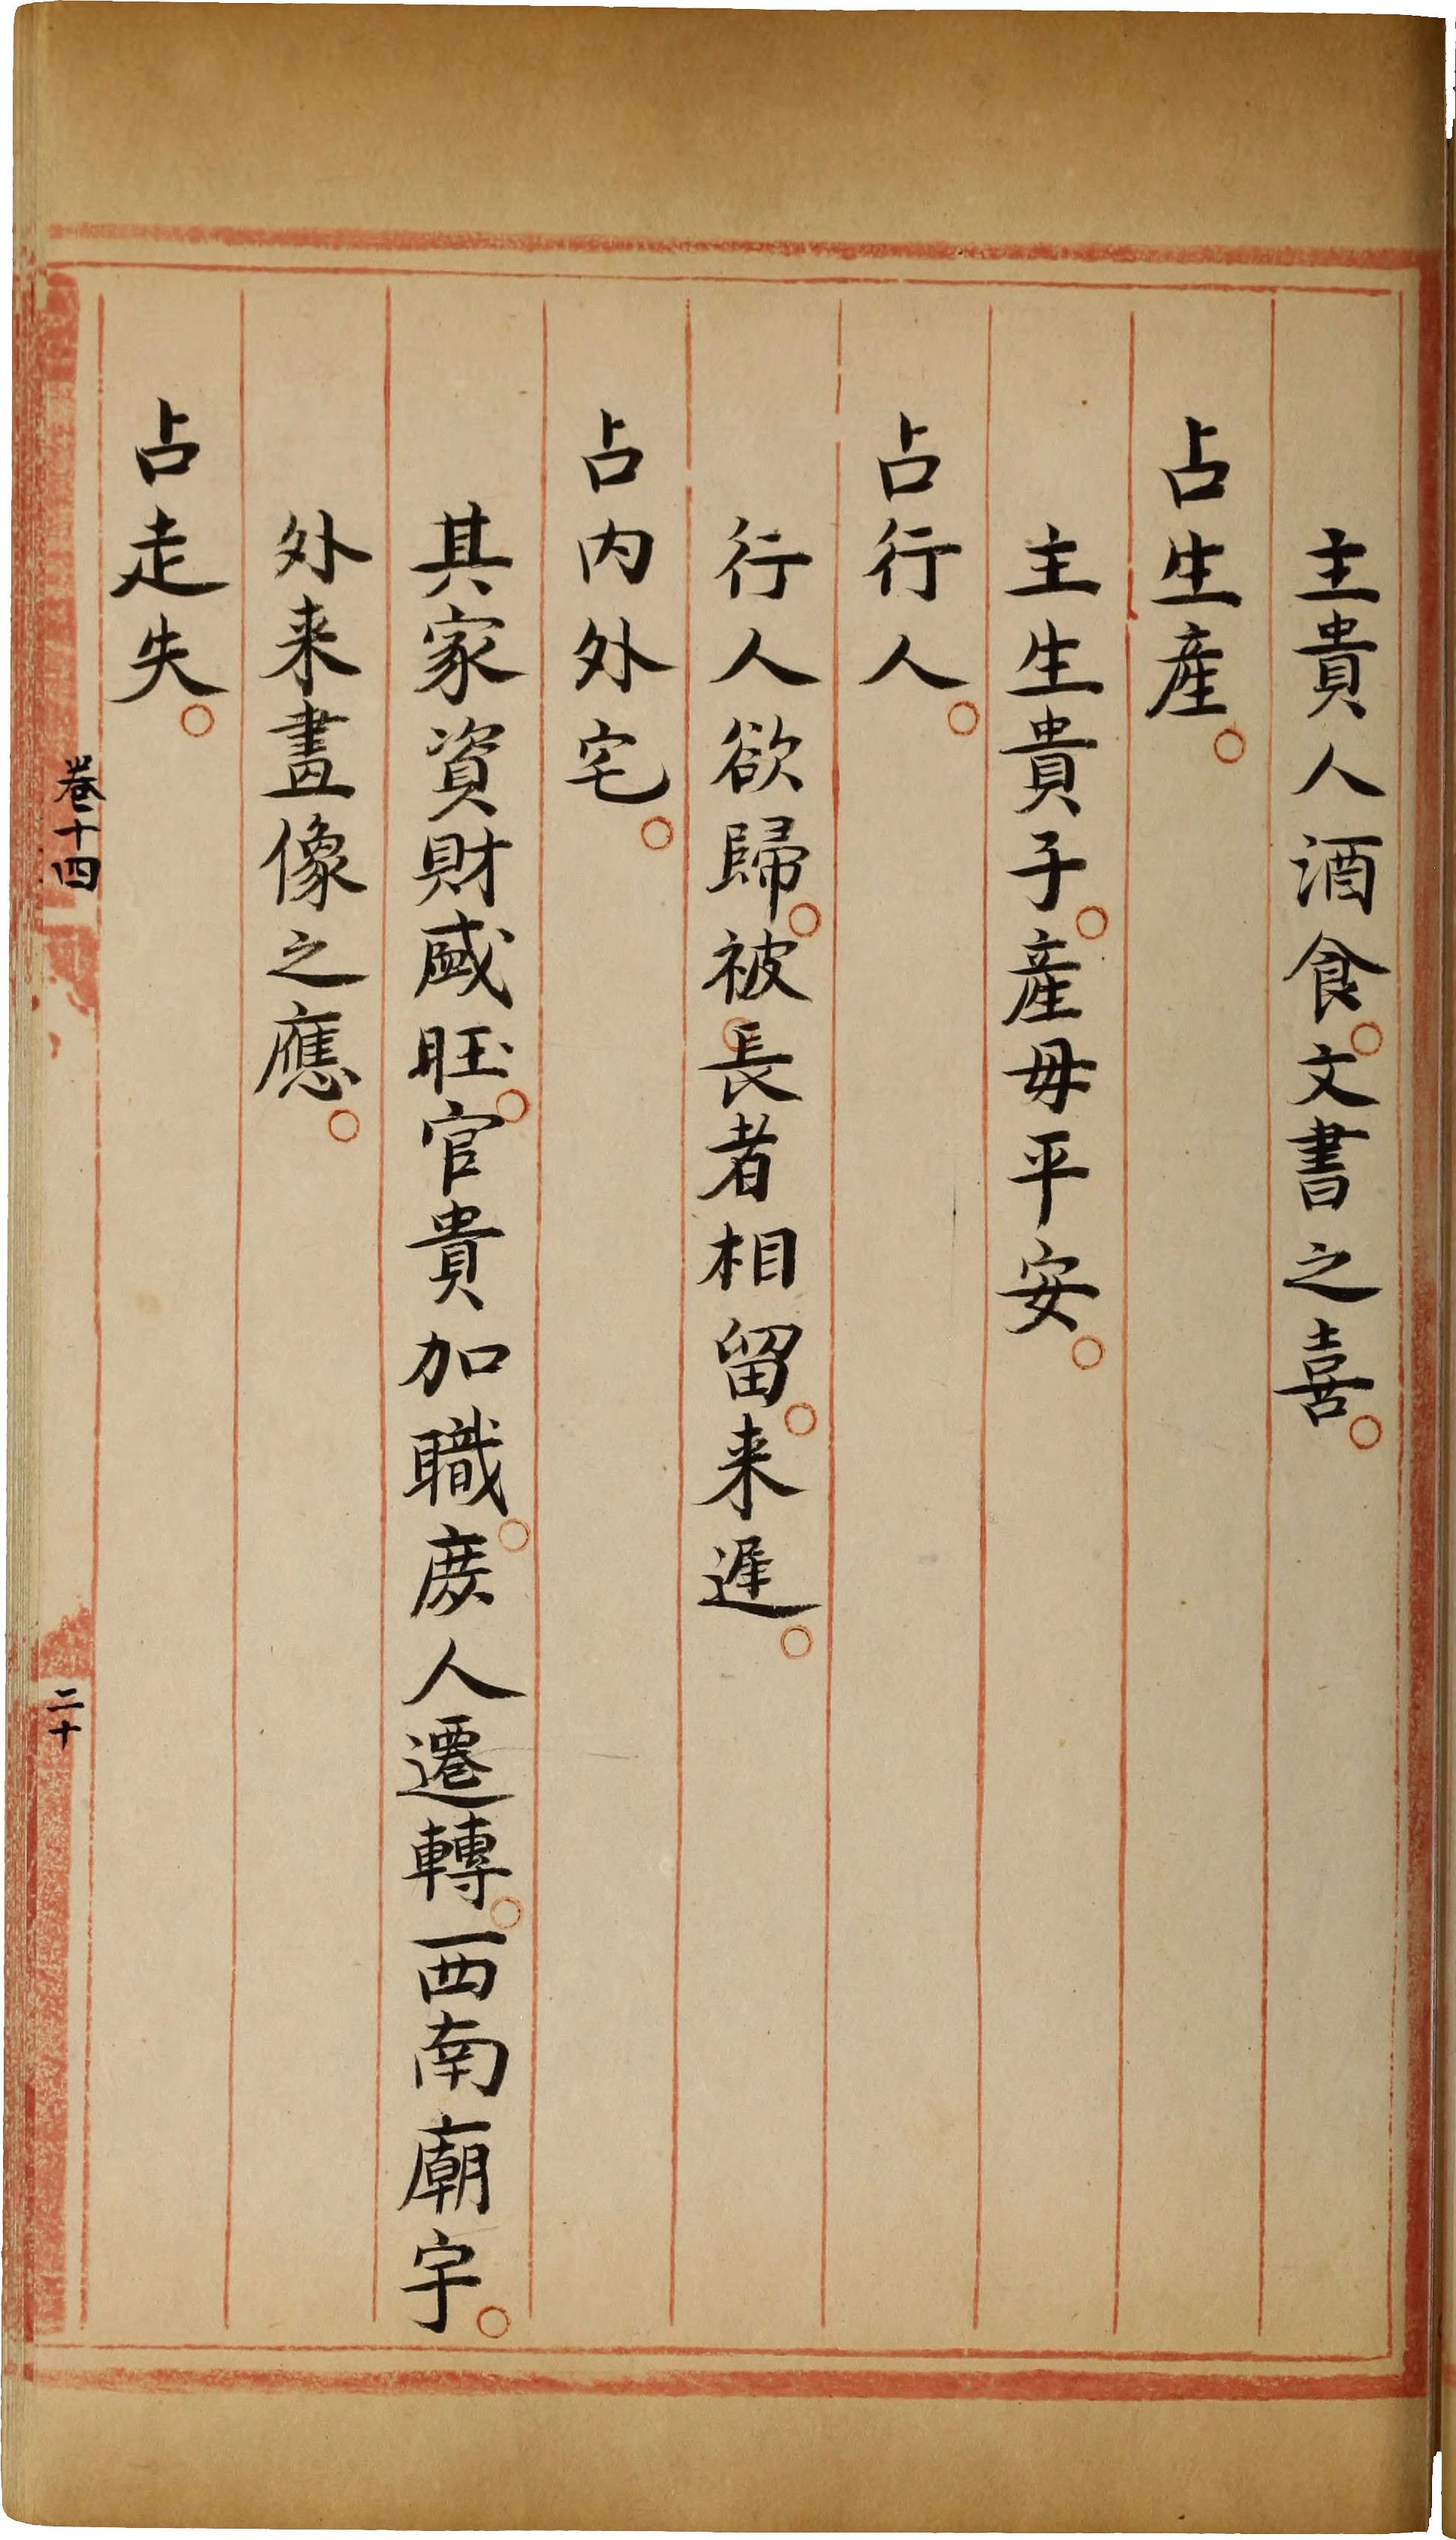 主貴人酒食。文書之喜。
占生產。
主生貴子。產母平安。
占行人。
行人欲歸。被長者相留。来遲。
占内外宅。
其家資財盛旺。官貴加職。庶人遷轉。西南廟宇。
外来畫像之應。
占走失。
卷十四
二十